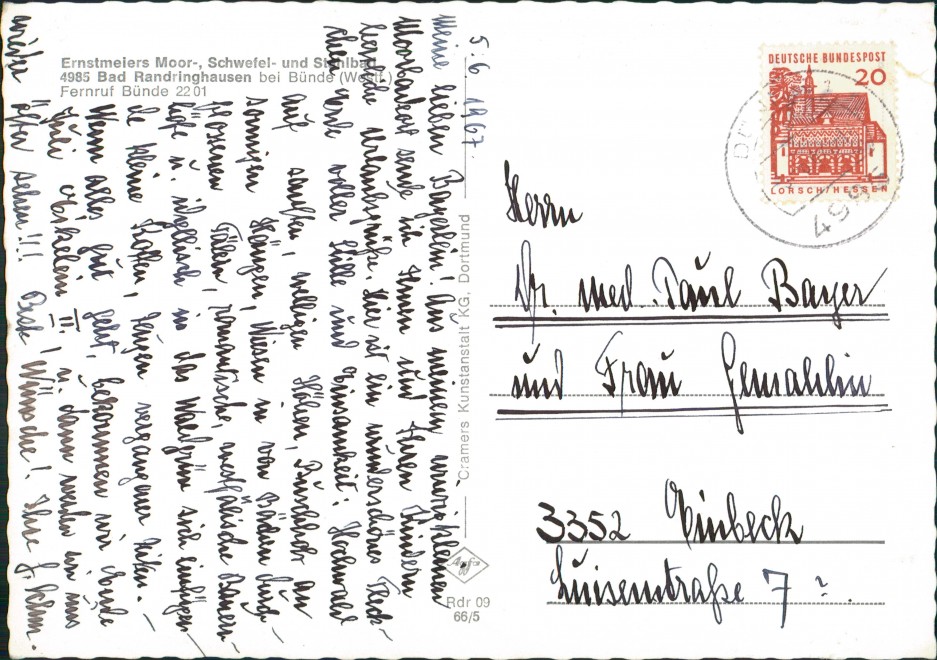 Ernstmeiers Moor-, Schwefel- und Stahlbad
4985 Bad Randringhausen bei Bünde (Westf.)
Fernruf Bünde 22 01
5. 6. 1967.
Meine lieben Bayerlein! Aus meinem winzig kleinen
Moorbadeort sende ich Ihnen und Ihren Kindern
herzliche Urlaubsgrüße. Hier ist ein wunderschönes Fleck-
chen Erde voller Stille und Einsamkeit: Hochwald
auf sanften, welligen Höhen, Buschwerk an
sonnigen Hängen, Wiesen in von Bächen durch-
flossenen Tälern, romantische, westfälische Bauern-
höfe u. idyllisch in das Waldgrün sich einfügen-
de kleine Kotten, Zeugen vergangener Zeiten. –
Wenn alles gut geht, bekommen wir Ende
Juli Enkelein II! u. dann werden wir uns
wieder öfter sehen!!! Beste Wünsche! Ihre
Cramers Kunstanstalt KG, Dortmund
Rdr 09
66/5
DEUTSCHE BUNDESPOST
20
LORSCH/HESSEN
Herrn
Dr. med. Paul Bayer
und Frau Gemahlin
3352 Einbeck
Luisenstraße 7